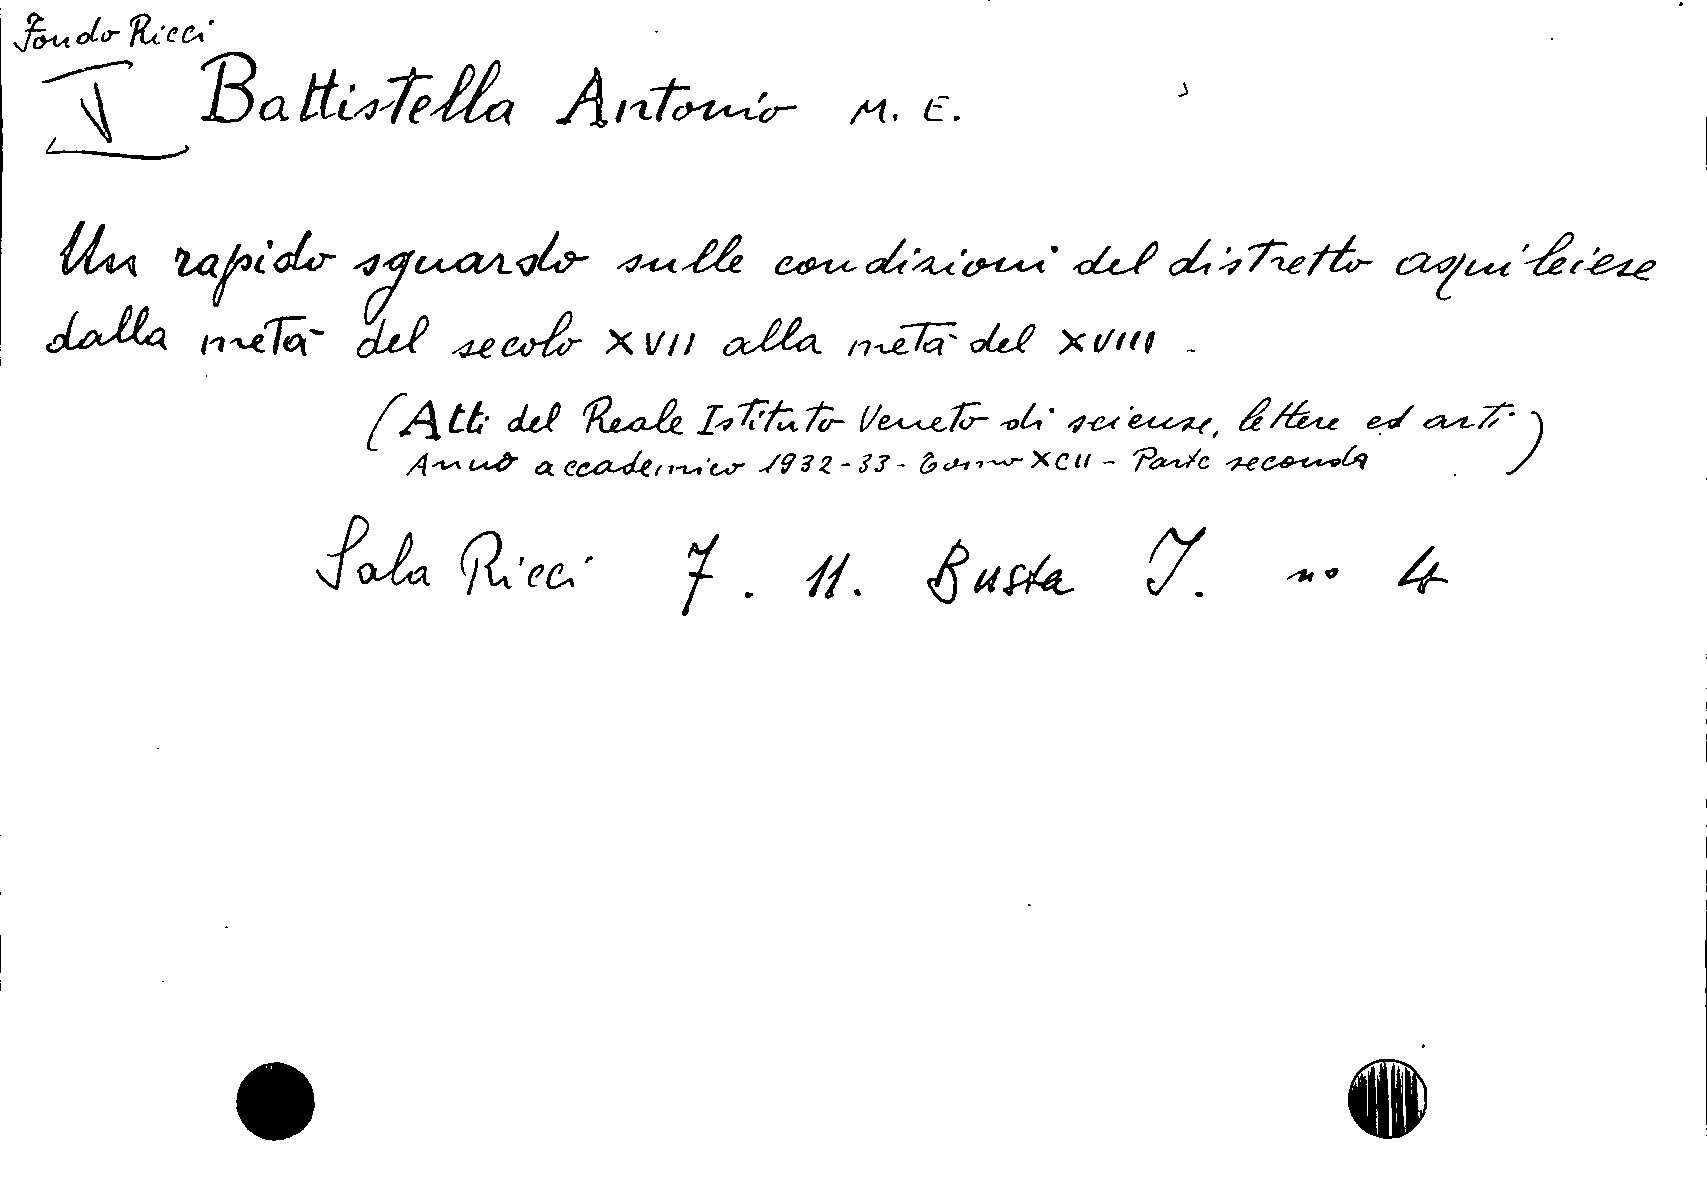 Fondo Ricci
V Battistella Antonio M. E.
Un rapido sguardo sulle condizioni del distretto aquileiese
dalla metà del secolo XVII alla metà del XVIII.
(Atti del Reale Istituto Veneto di scienze, lettere ed arti
Anno accademico 1932-33 - Tomo XCII - Parte seconda)
Sala Ricci 7. 11. Busta I. n° 4